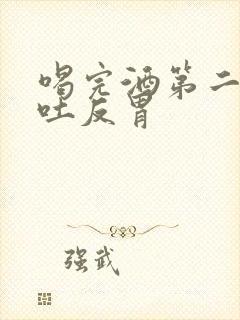 喝完酒第二
吐反胃
强武